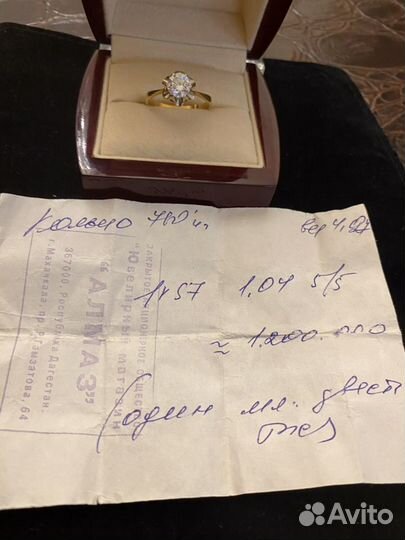 Кольцо 750 пр. вес 4,87
1кр57 1,04 5/5
≈ 1.200.000
(один мл. двести
тыс)
Закрытое акционерное общество
"Ювелирный магазин
"АЛМАЗ"
367000 Республика Дагестан,
г. Махачкала, пр. Р.Гамзатова, 64
Avito